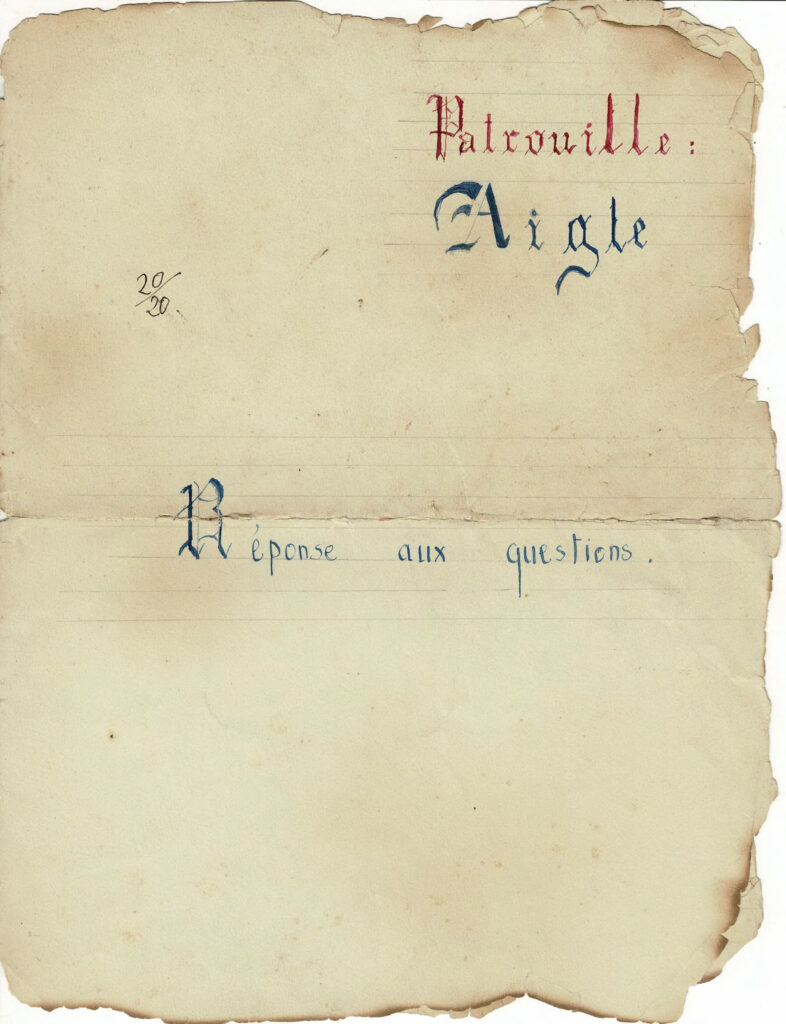 Patrouille :
Aigle
20/20.
Réponse aux questions.